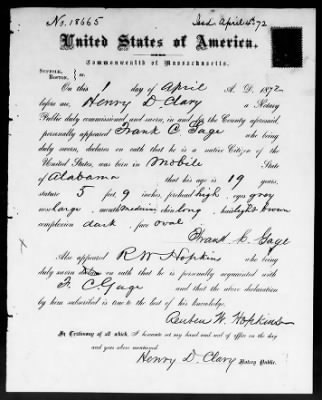 No. 18665 Issd April 4th 72
United States of America.
Commonwealth of Massachusetts.
SUFFOLK,
BOSTON. } ss.
On this 1 day of April A. D. 1872
before me, Henry D. Clary a Notary
Public duly commissioned and sworn, in and for the County aforesaid,
personally appeared Frank C Gage who being
duly sworn, declares on oath that he is a native Citizen of the
United States, was born in Mobile State
of Alabama that his age is 19 years,
stature 5 feet 9 inches, forehead high, eyes gray
nose large, mouth medium chin long, hair light brown
complexion dark, face oval
Frank C. Gage
Also appeared R W Hopkins who being
duly sworn on oath that he is personally acquainted with
F. C. Gage and that the above declaration
by him subscribed is true to the best of his knowledge.
Reuben W. Hopkins
In Testimony of all which, I hereunto set my hand and seal of office on the day
and year above mentioned.
Henry D. Clary Notary Public.